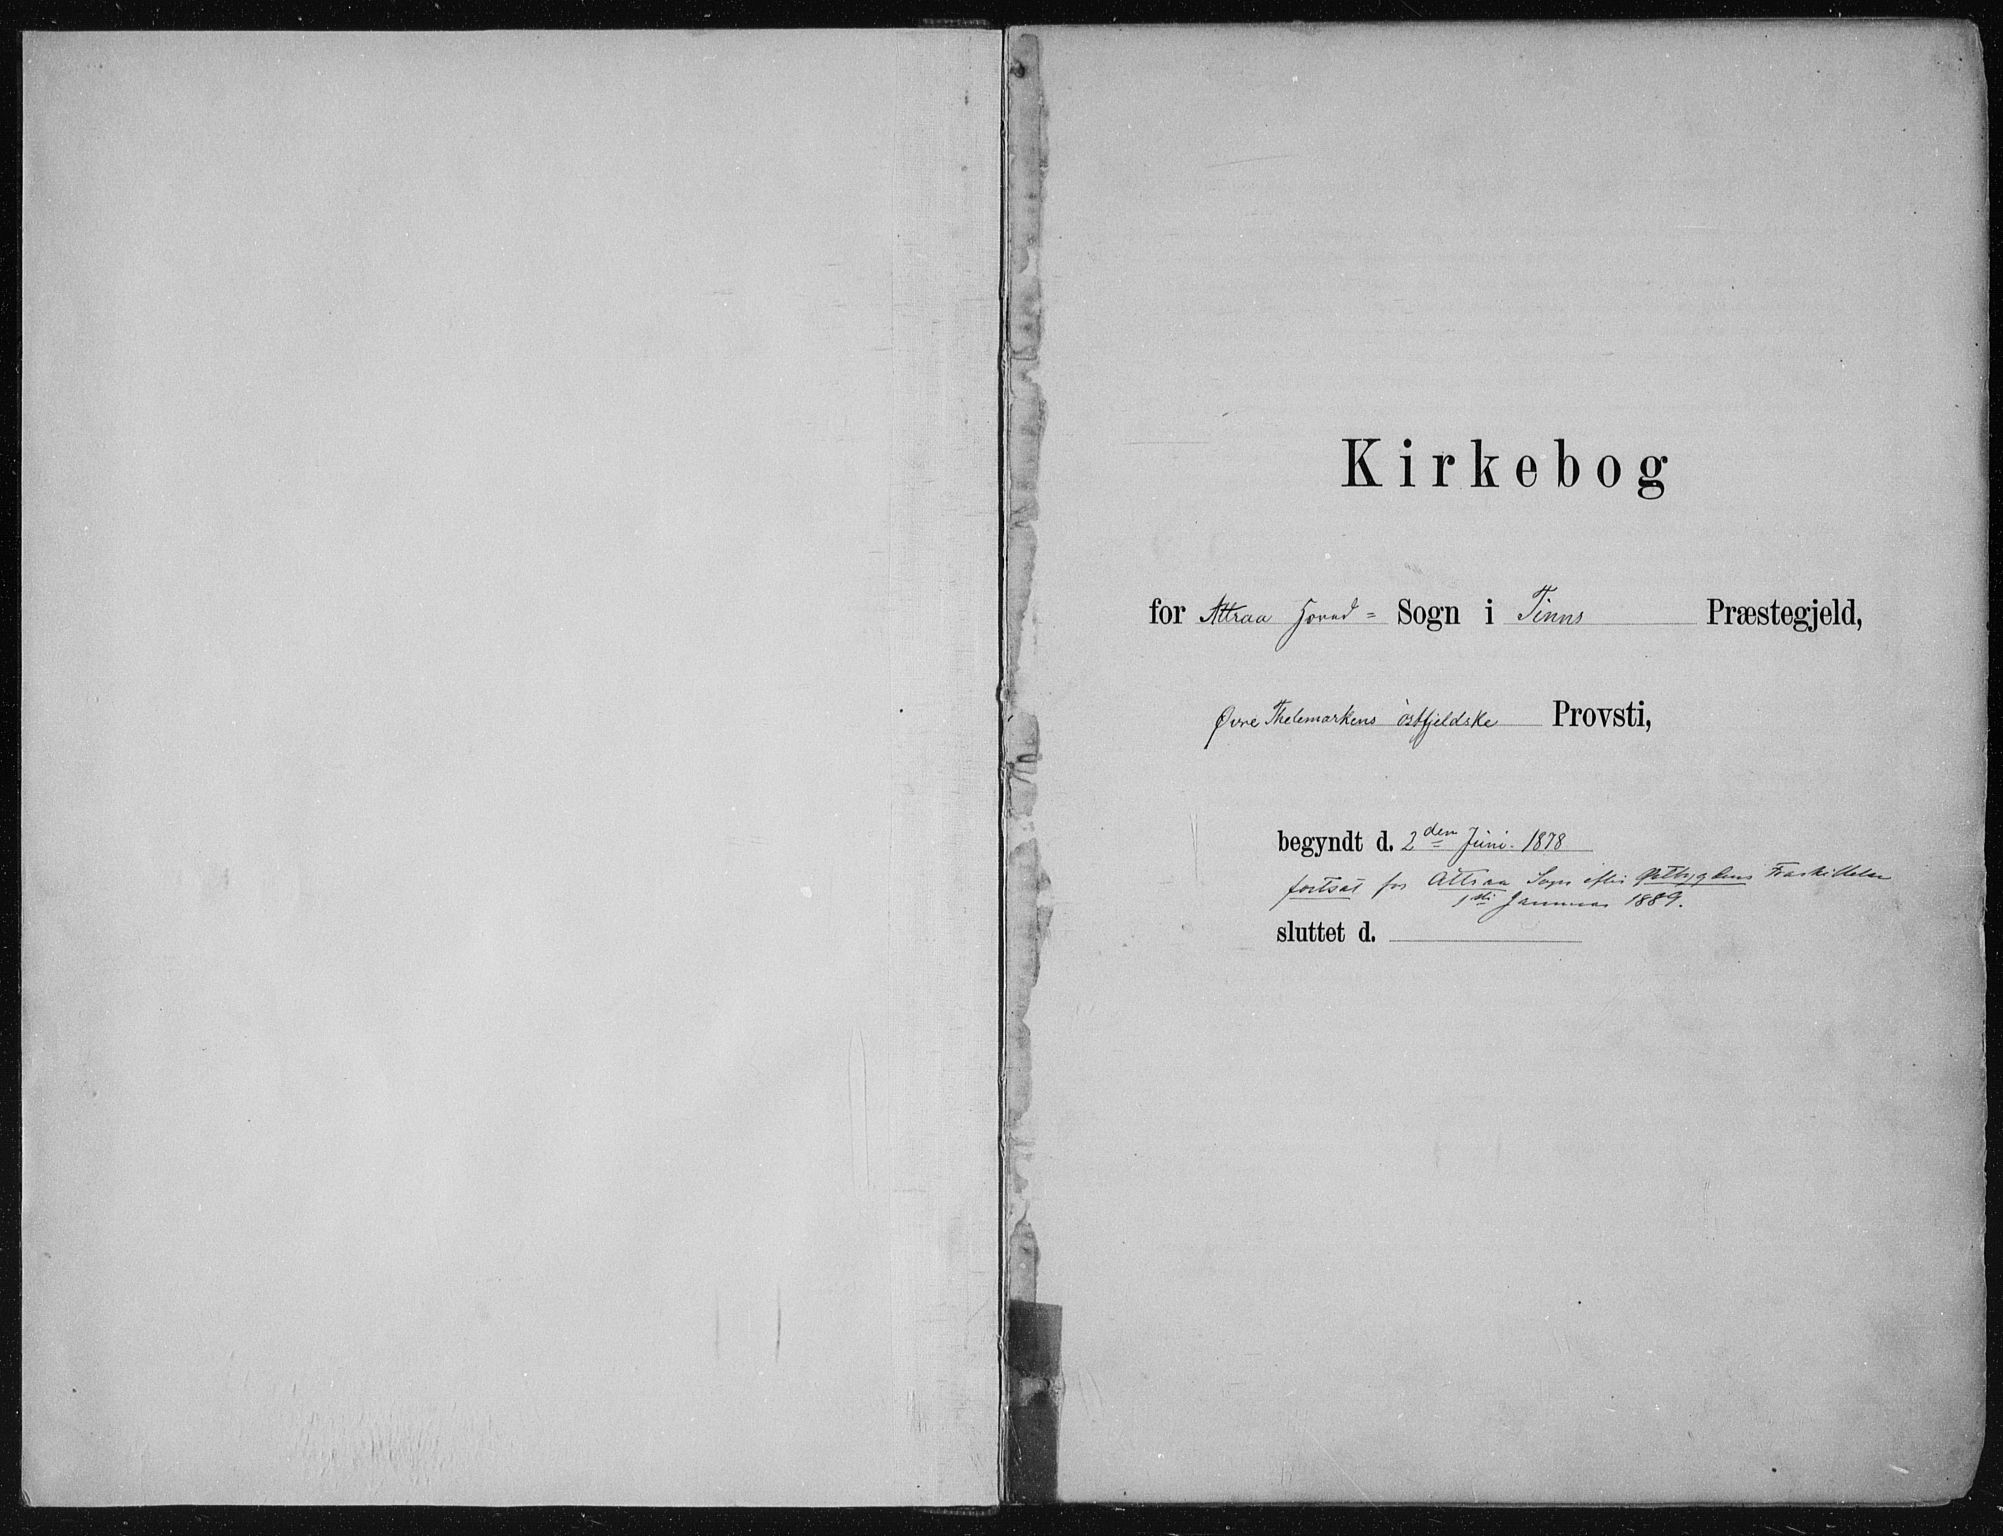 Kirkebog
for Attraa Hoved= Sogn i Tinns Præstegjeld,
Øvre Thelemarkens östfjeldske Provsti,
begyndt d. 2den Juni 1878
fortsat for Attraa Sogn efter Østbygdens Fraskillelse
1ste Januar 1889.
sluttet d.